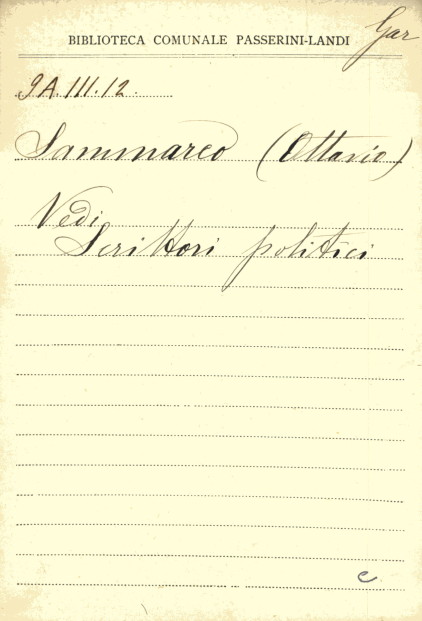 Gar
BIBLIOTECA COMUNALE PASSERINI-LANDI
9A.III.12.
Sammarco (Ottavio)
Vedi
Scrittori politici
c